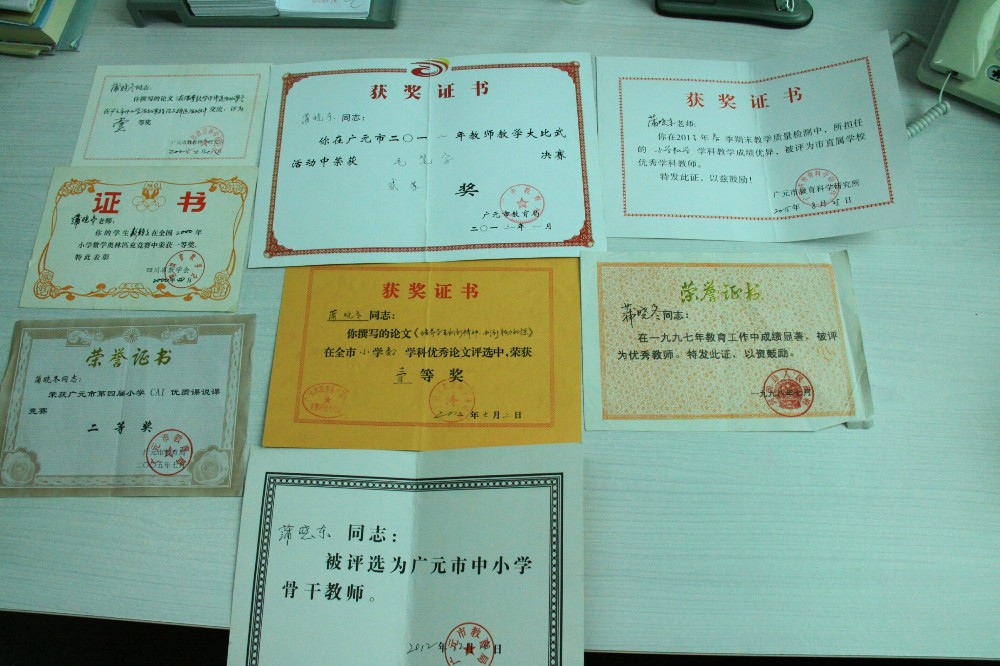 蒲晓冬同志:
你撰写的论文
交流,评为
壹 等奖
证书
蒲晓冬老师:
你的学生 在全国2000年
小学数学奥林匹克竞赛中荣获一等奖.
特此表彰
四川省数学会
2000年四月
荣誉证书
蒲晓冬同志:
荣获广元市第四届小学 CAI 优质课说课
竞赛
二等奖
广元市教育局
二〇〇五年七月
获奖证书
蒲晓冬 同志:
你在广元市二〇一一年教师教学大比武
活动中荣获 毛笔字 决赛
贰等 奖
广元市教育局
二〇一 年一月
获奖证书
蒲晓冬老师:
你在2011年春季期末教学质量检测中,所担任
的 小学数学 学科教学成绩优异,被评为市直属学校
优秀学科教师。
特发此证,以兹鼓励!
广元市教育科学研究所
年8月 日
获奖证书
蒲晓冬 同志:
你撰写的论文《培养学生创新精神,
在全市小学 学科优秀论文评选中,荣获
等奖
2002年七月二日
荣誉证书
蒲晓冬同志:
在一九九七年教育工作中成绩显著,被评
为优秀教师。特发此证,以资鼓励。
一九九八年七月
蒲晓东 同志:
被评选为广元市中小学
骨干教师。
2012年 日
广元市教育局